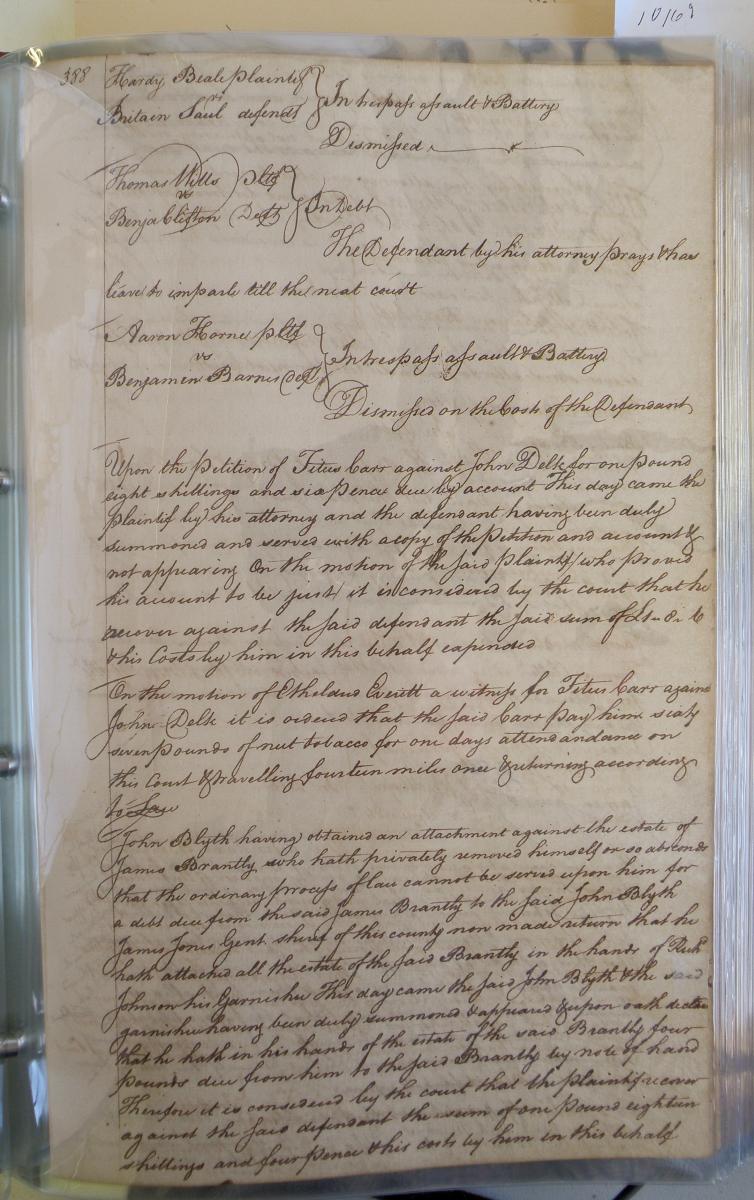 10/69
388 Hardy Beale plaintif
vs
Britain Saul defendt
In trespass assault & Battery
Dismissed
Thomas Wills pltf
vs
Benja Clifton Deft
In Debt
The Defendant by his attorney prays & has
leave to imparle till the next court
Aaron Horne pltf
vs
Benjamin Barnes Deft
In trespass assault & Battery
Dismissed on the Costs of the Defendant
Upon the petition of Titus Carr against John Delk for one pound
eight shillings and six pence due by account This day came the
plaintif by his attorney and the defendant having been duly
summoned and served with a copy of the petition and account &
not appearing On the motion of the said plaintif (who proved
his account to be just) it is considered by the court that he
recover against the said defendant the said sum of £1 .. 8 .. 6
& his Costs by him in this behalf expended
On the motion of Etheldred Everitt a witness for Titus Carr against
John Delk it is ordered that the said Carr pay him sixty
seven pounds of nett tobacco for one days attendandance on
this Court & travelling fourteen miles once & returning according
to Law
John Blyth having obtained an attachment against the estate of
James Brantly who hath privately removed himself or so absconds
that the ordinary process of law cannot be served upon him for
a debt due from the said James Brantly to the said John Blyth
James Jones Gent. sherif of this county now made return that he
hath attached all the estate of the said Brantly in the hands of Richd
Johnson his Garnishee This day came the said John Blyth & the said
garnishee having been duly summoned & appeared & upon oath declare
that he hath in his hands of the estate of the said Brantly four
pounds due from him to the said Brantly by note of hand
Therefore it is considered by the court that the plaintif recover
against the said defendant the sum of one pound eighteen
shillings and four pence & his costs by him in this behalf